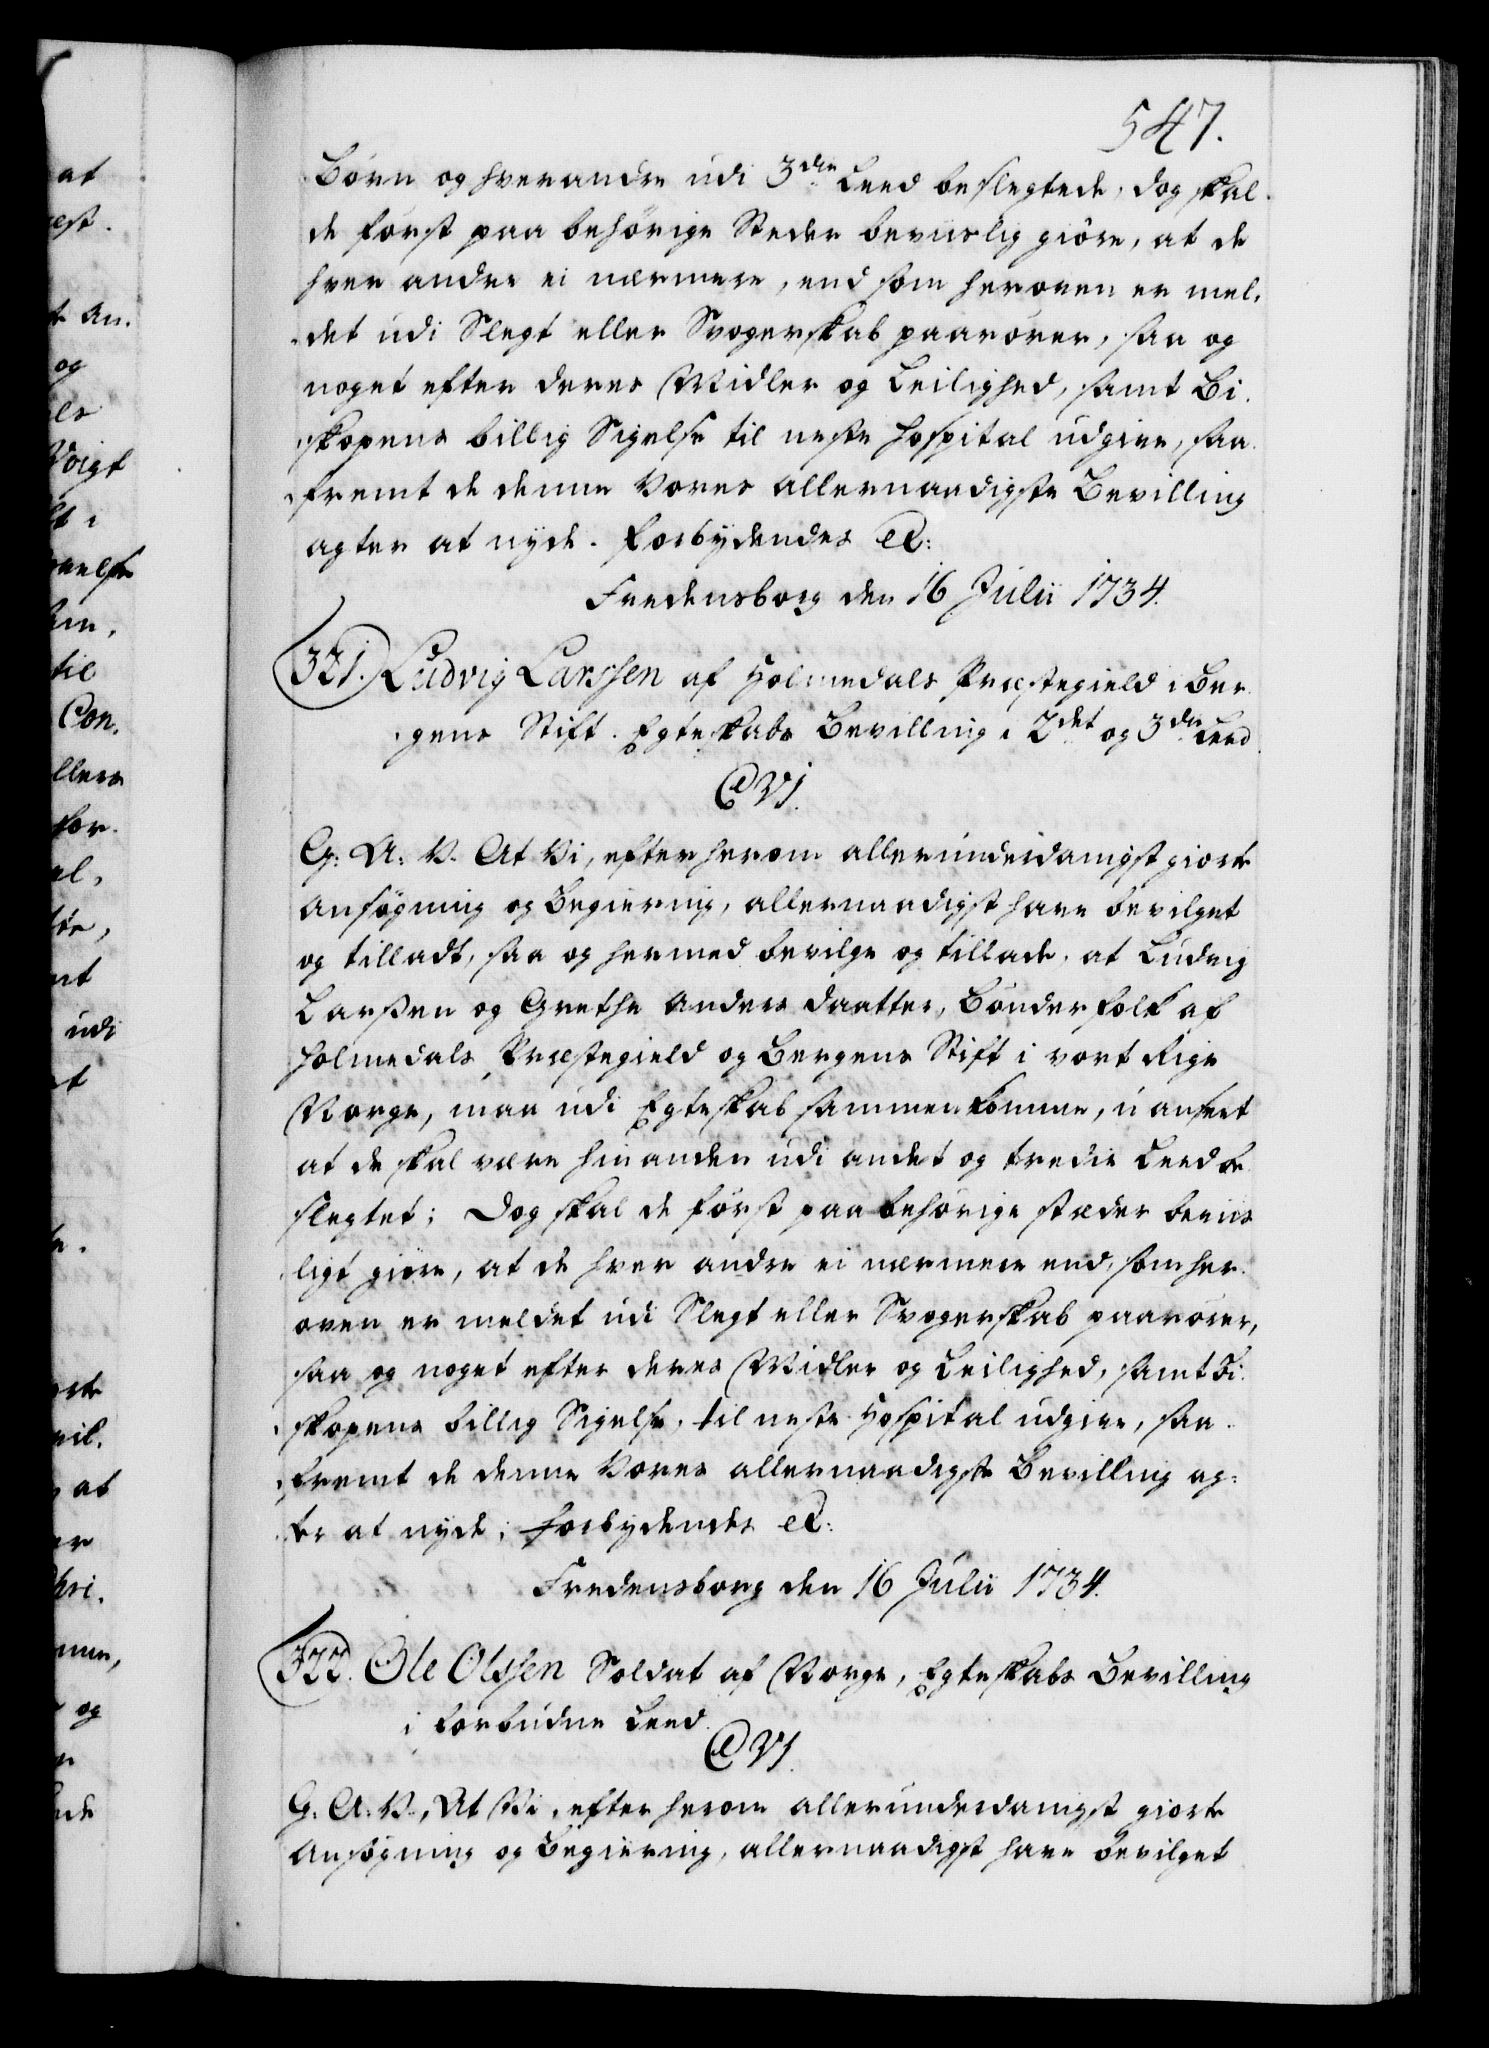 547.
Börn og hverandre udi 3die Leed beslegtede, dog skal
de først paa behörige Steder beviislig giöre, at de
hver andre ei nærmere, end som heroven er mel-
det udi Slegt eller Svogerskab paarörer, saa og
noget efter deres Midler og Leilighed, samt Bi-
skopens billig Sigelse til neste Hospital udgive, saa-
fremt de denne Vores allernaadigste Bevilling
agter at nyde. Forbydendes etc:
Fredensborg den 16 Julii 1734.
321. Ludvig Larssen af Holmedals Præstegield i Ber-
gens Stift. Egteskabs Bevilling i 2det og 3die Leed
C VI.
G: A: V. At Vi, efter herom allerunderdanigst giorte
Ansögning og Begiering, allernaadigst have bevilget
og tilladt, saa og hermed bevilge og tillade, at Ludvig
Larssen og Grethe Anders Daatter, Bönderfolk af
Holmedals Præstegield og Bergens Stift i vort Rige
Norge, maa udi Egteskab sammenkomme, uanseet
at de skal være hinanden udi andet og tredie Leed be-
slegtet; Dog skal de först paa behörige stæder beviis-
ligt giöre, at de hver andre ei nærmere end, som her-
oven er meldet udi Slegt eller Svogerskab paarörer,
saa og noget efter deres Midler og Leilighed, samt Bi-
skopens billig Sigelse, til neste Hospital udgive, saa-
fremt de denne Vores allernaadigste Bevilling ag-
ter at nyde; Forbydendes etc:
Fredensborg den 16 Julii 1734.
322. Ole Olssen Soldat af Norge, Egteskabs Bevilling
i forbudne Leed.
C VI.
G: A: V., At Vi, efter herom allerunderdanigst giorte
Ansögning og Begiering, allernaadigst have bevilget